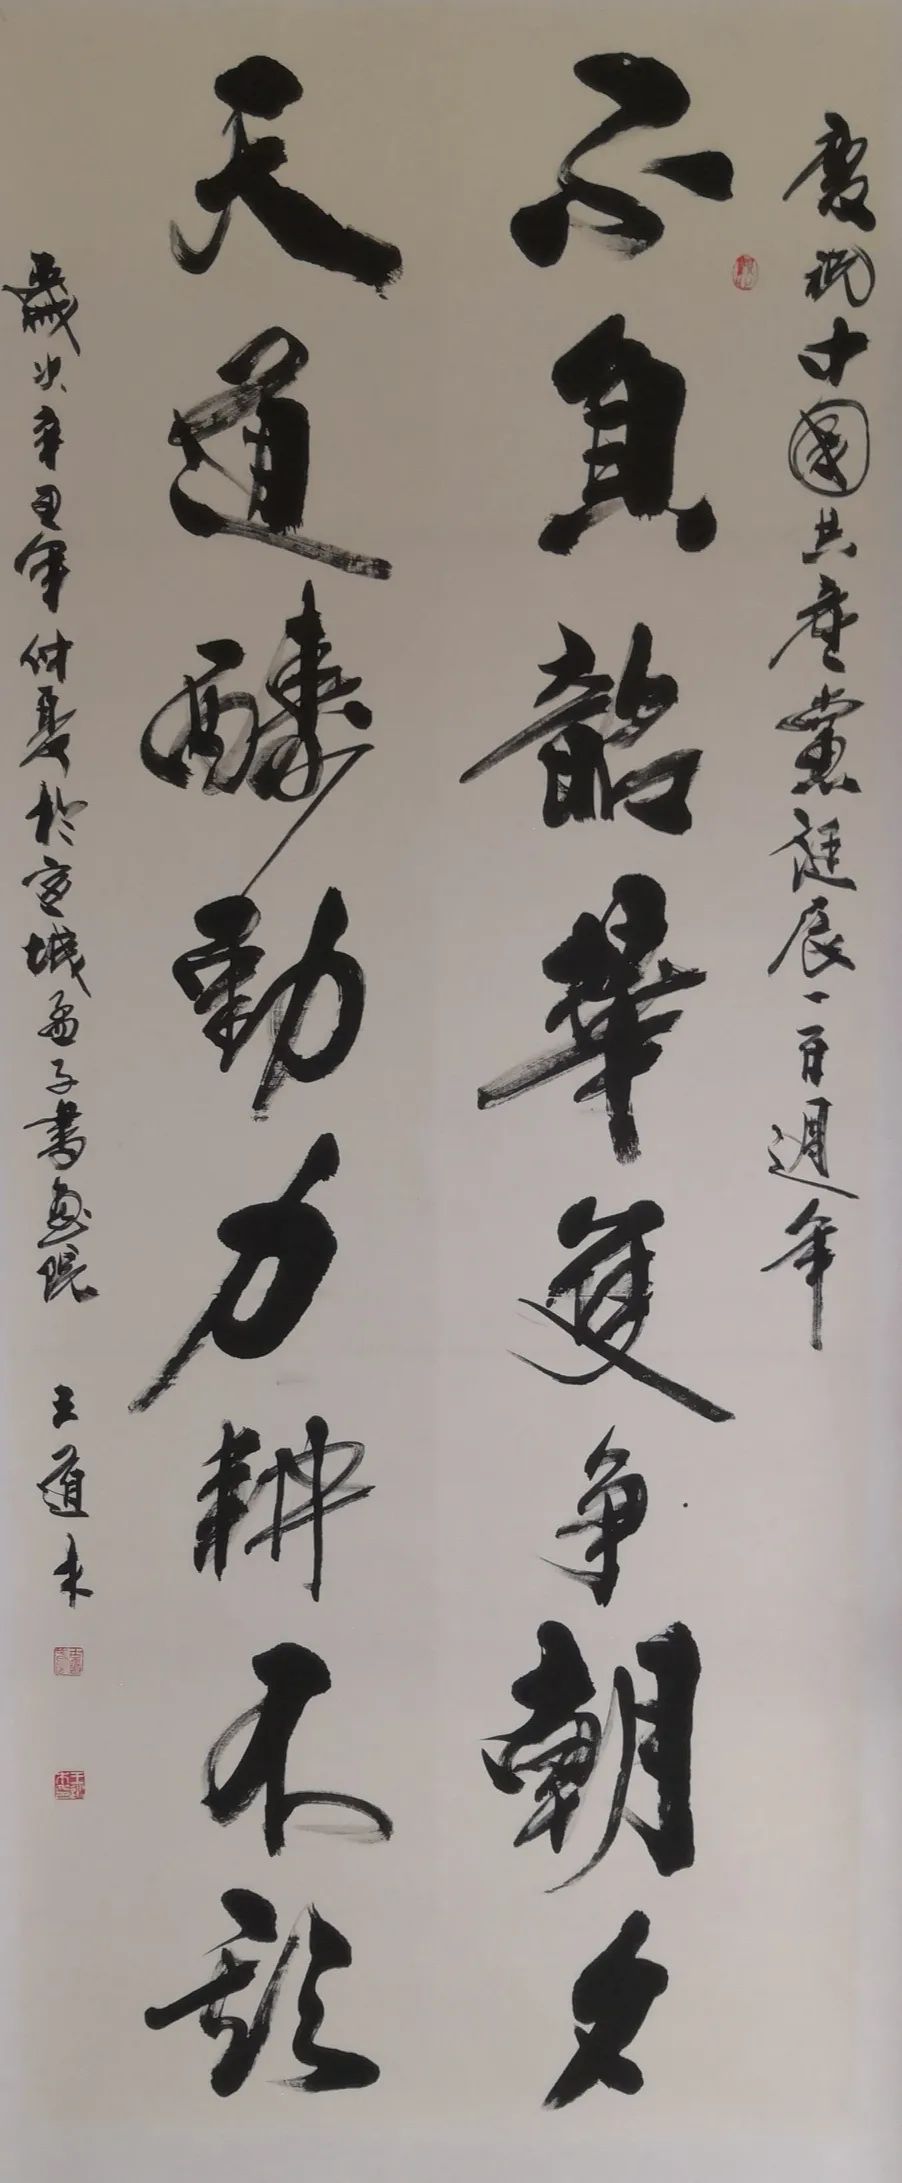 慶祝中國共產黨誕辰一百週年
不負韶華隻争朝夕
天道酬勤力耕不欺
歲次辛丑年仲夏於城孟子書畫院
王道